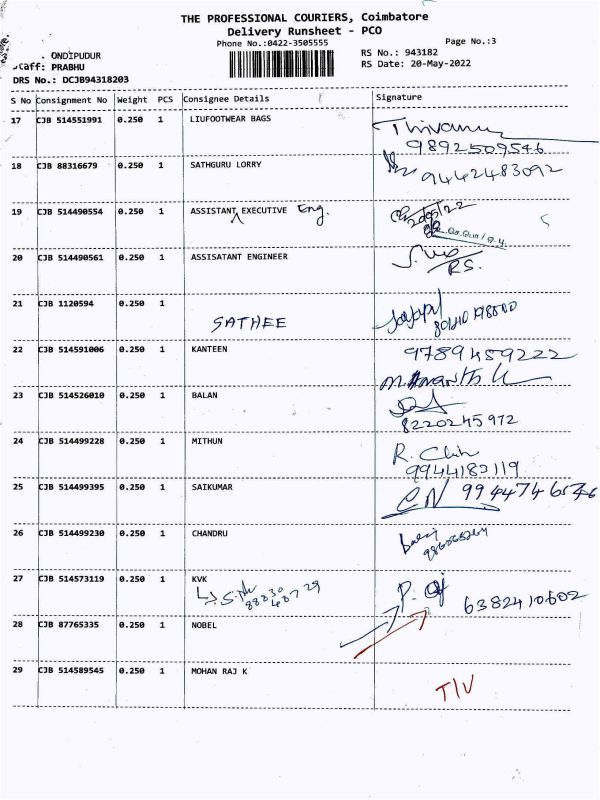 THE PROFESSIONAL COURIERS, Coimbatore
Delivery Runsheet - PCO
Phone No.:0422-3505555
Page No.:3
ONDIPUDUR
RS No.: 943182
Staff: PRABHU
RS Date: 20-May-2022
DRS No.: DCJB94318203
S No Consignment No Weight PCS Consignee Details Signature
17 CJB 514551991 0.250 1 LIUFOOTWEAR BAGS
9892509546
18 CJB 88316679 0.250 1 SATHGURU LORRY
9442483092
19 CJB 514490554 0.250 1 ASSISTANT EXECUTIVE Eng.
20 CJB 514490561 0.250 1 ASSISATANT ENGINEER
21 CJB 1120594 0.250 1
SATHEE
22 CJB 514591006 0.250 1 KANTEEN 9789459222
23 CJB 514526010 0.250 1 BALAN
8220245972
24 CJB 514499228 0.250 1 MITHUN
25 CJB 514499395 0.250 1 SAIKUMAR
26 CJB 514499230 0.250 1 CHANDRU
27 CJB 514573119 0.250 1 KVK
6382410602
28 CJB 87765335 0.250 1 NOBEL
29 CJB 514589545 0.250 1 MOHAN RAJ K